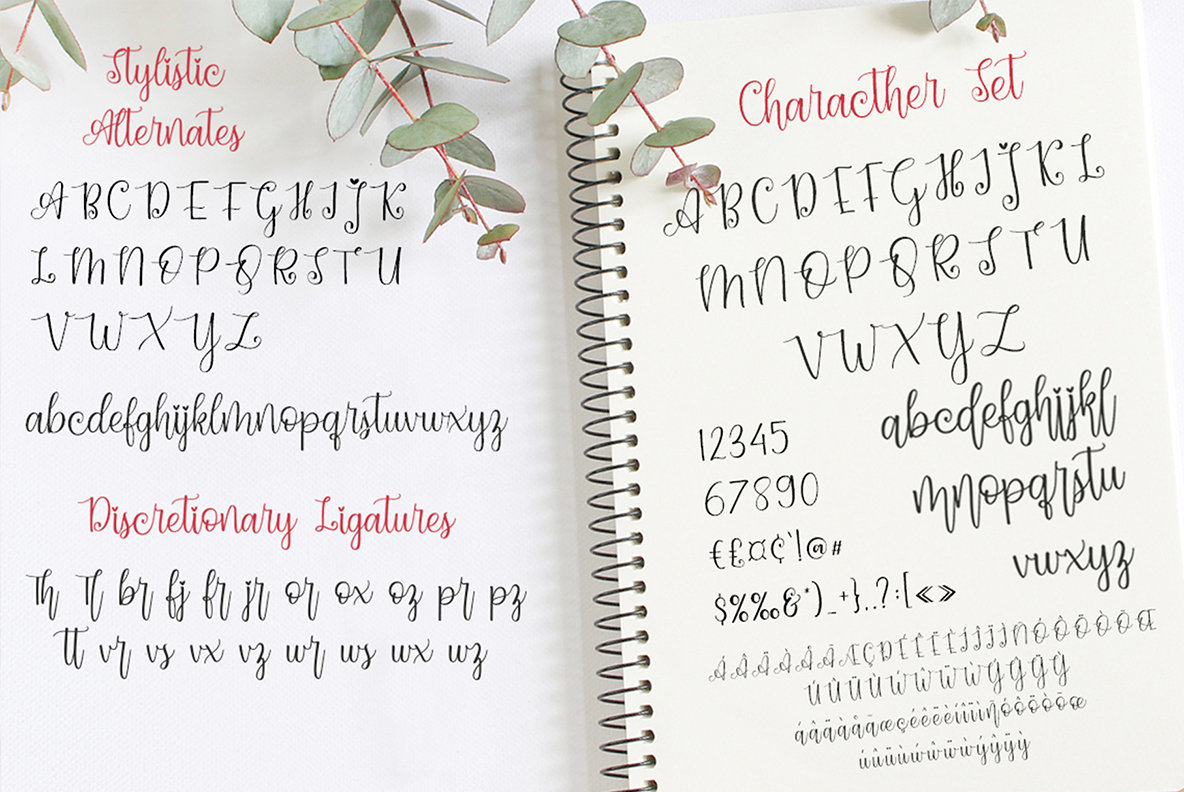 Stylistic
Alternates
A B C D E F G H I J K
L M N O P Q R S T U
V W X Y Z
abcdefghijklmnopqrstuvwxyz
Discretionary Ligatures
Th Tl br fj fr jr or ox oz pr pz
tt vr vs vx vz wr ws wx wz
Characther Set
A B C D E F G H I J K L
M N O P Q R S T U
V W X Y Z
12345
67890
€£¤¢`!@#
$%‰&*)_+}..?:[«»
abcdefghijkl
mnopqrstu
vwxyz
ÚÛÜÙẂŴẄẀÝŶŸỲ
úûüùẃŵẅẁýŷÿỳ